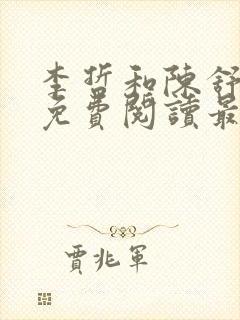 李哲和陳舒
免費閱讀最
賈兆軍